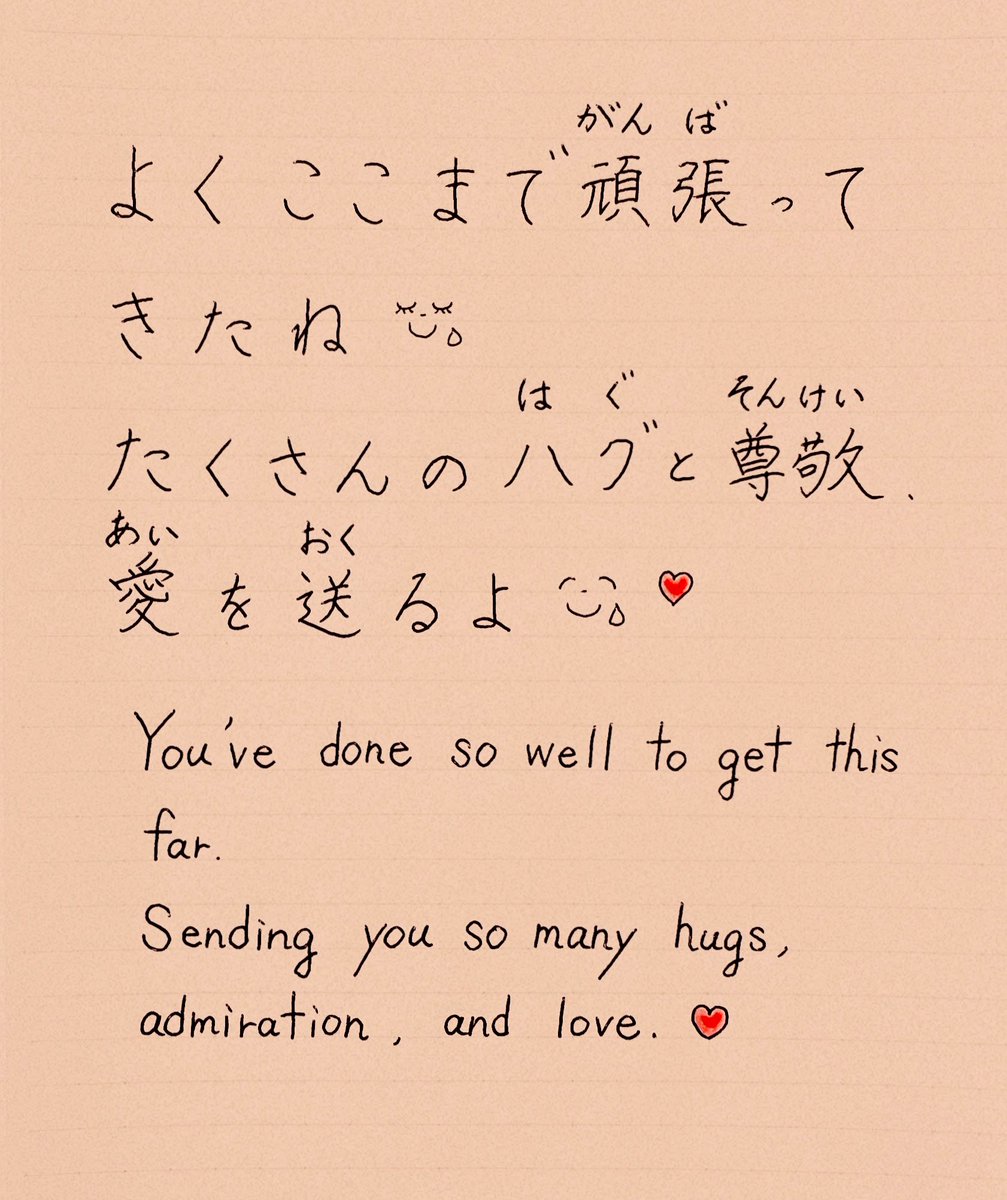 がん ば
よくここまで頑張って
きたね
は ぐ そんけい
たくさんのハグと尊敬、
あい おく
愛を送るよ
You've done so well to get this
far.
Sending you so many hugs,
admiration, and love.